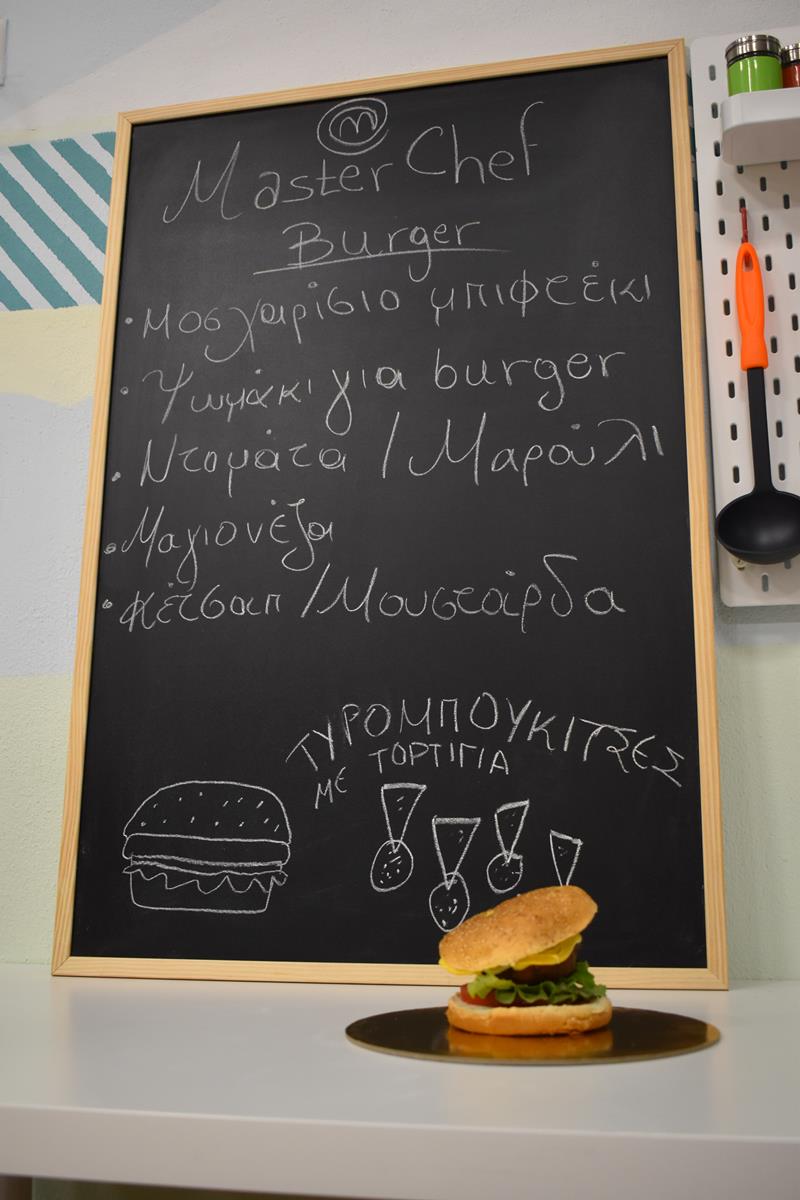 m
Master Chef
Burger
• Μοσχαρίσιο μπιφτέκι
• Ψωμάκι για burger
• Ντομάτα / Μαρούλι
• Μαγιονέζα
• Κέτσαπ / Μουστάρδα
ΤΥΡΟΜΠΟΥΚΙΤΣΕΣ
ΜΕ ΤΟΡΤΙΓΙΑ